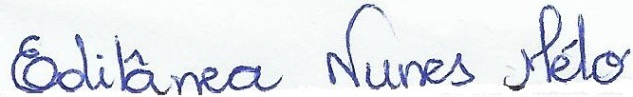 Edilânea Nunes Mélo